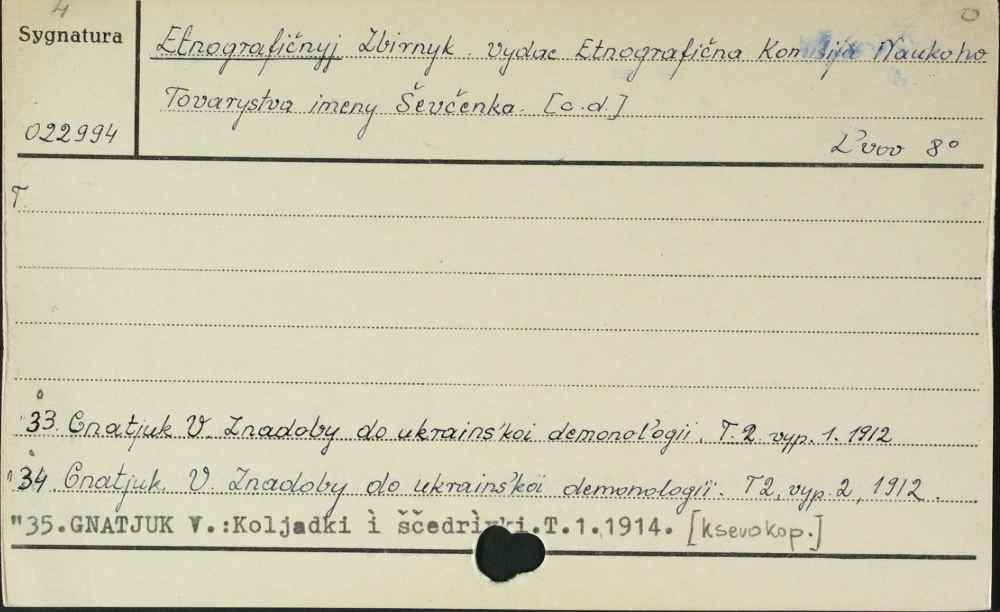 4
0
Sygnatura
Etnografičnyj Zbirnyk. vydac Etnografična Komisija Naukoho
Tovarystva imeny Ševčenka. [c.d.]
022994
L'vov 8°
T.
33. Gnatjuk V. Znadoby do ukrains'koi demonol'ogii. T. 2 vyp. 1. 1912
"34. Gnatjuk. V. Znadoby do ukrains'koï demonologiï. T2, vyp. 2, 1912.
"35.GNATJUK V.:Koljadki ì ščedrìvki.T.1.1914. [kserokop.]